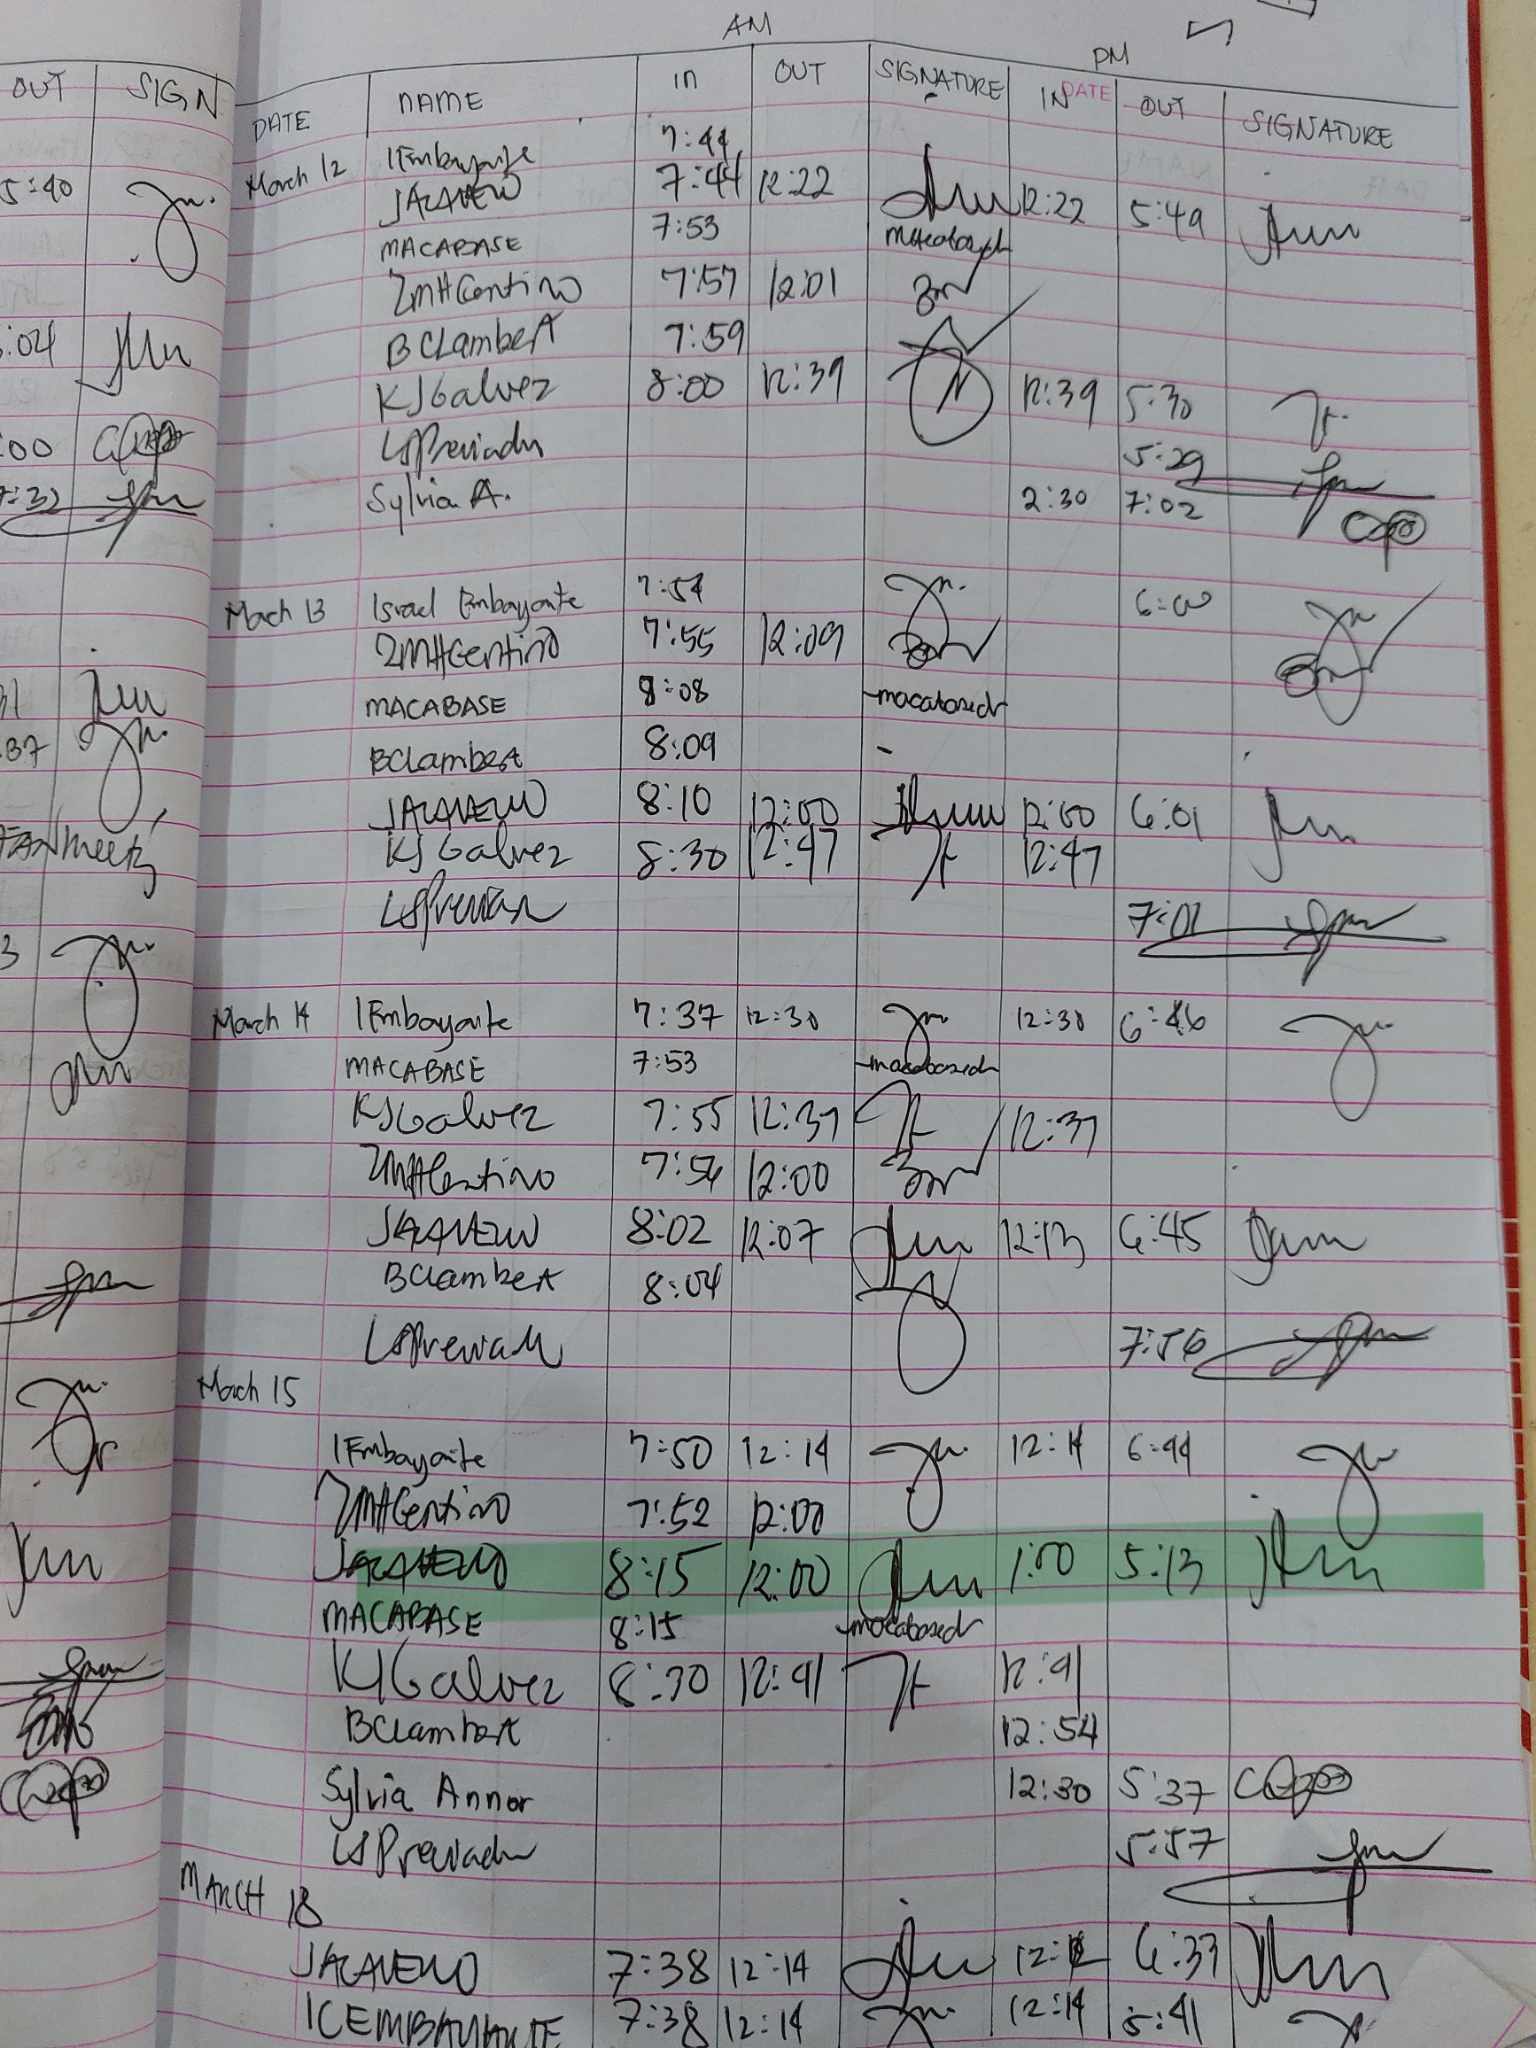 AM
PM
OUT SIGN DATE NAME IN OUT SIGNATURE IN DATE OUT SIGNATURE
March 12 IEmbayarte 7:44
5:40 JACAVERO 7:44 12:22 12:22 5:49
MACABASE 7:53 macabased
ZMHCentino 7:57 12:01
:04 BCLambert 7:59
KJGalvez 8:00 12:39 12:39 5:30
:00 LSPreviadu 5:29
7:32 Sylvia A. 2:30 7:02
March 13 Israel Embayarte 7:54 6:00
ZMHCentino 7:55 12:09
31 MACABASE 8:08 macabased
:37 BCLambert 8:09 -
JACAVERO 8:10 12:00 12:00 6:01
KJGalvez 8:30 12:47 12:47
7:01
3 March 14 IEmbayarte 7:37 12:30 12:30 6:46
MACABASE 7:53 macabased
KJGalvez 7:55 12:37 12:37
ZMHCentino 7:56 12:00
JACAVERO 8:02 12:07 12:13 6:45
BCLambert 8:04
7:56
March 15
IEmbayarte 7:50 12:14 12:14 6:44
ZMHCentino 7:52 12:00
JACAVERO 8:15 12:00 1:00 5:13
MACABASE 8:15 macabased
KJGalvez 8:30 12:41 12:41
BCLambert 12:54
Sylvia Annor 12:30 5:37
LSPreviadu 5:57
MARCH 18
JACAVERO 7:38 12:14 6:33
ICEMBAYARTE 7:38 12:14 12:14 5:41